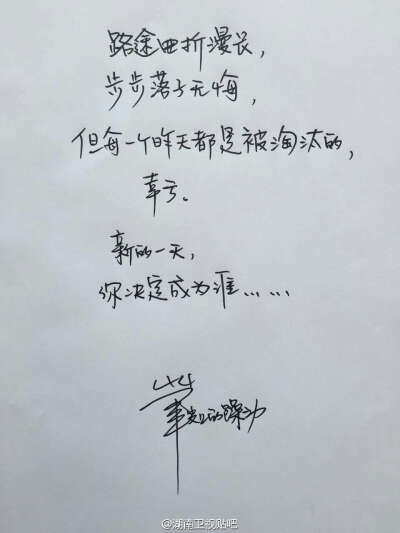 路途曲折漫长，
步步落子无悔，
但每一个昨天都是被淘汰的，
幸亏。
新的一天，
你决定成为谁……
的躁动
@湖南卫视贴吧